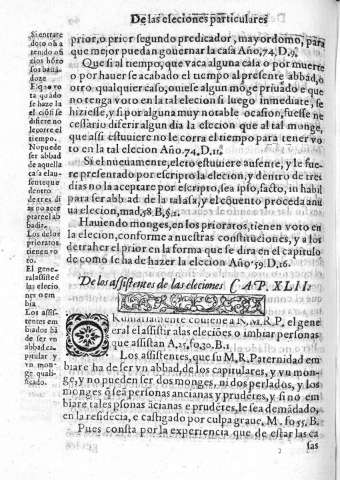 De las eleciones particulares
prior, o prior segundo predicador, mayordomo, para
que mejor puedan gouernar la casa Año, 74, D, 9,
Que si al tiempo, que vaca alguna casa o por muerte
o por hauer se acabado el tiempo al presente abbad, o
otro qualquier caso, ouiese algun moge priuado e que
no tenga voto en la tal elecion si luego inmediate, se
hiziesse, y si por alguna muy notable ocasion, fuesse ne
cesario diferir algun dia la elecion que al tal monge,
que assi estuuiere no le corra el tiempo para tener vo
to en la tal elecion Año, 74, D, 11,
Si el nueuamente, elcto estuuiere ausente, y le fue
re presentado por escripto la elecion, y dentro de tres
dias no la aceptare por escripto, sea ipso, facto, in habil
para ser abbad de la tal
y el cõquento proceda a nu
ua elecion,
Hauiendo monges, en los prioratos, tienen voto en
la elecion, conforme a nuestras constituciones, y a los
detraher el prior en la forma que se dira en el capitulo
de como se ha de hazer la elecion Año 59, D, 16,
De los assistentes de las eleciones CAP. XLII.
ORdinariamente conuiene a N, M, R, P, el gene
eral el assistir a las elecioẽs o imbiar personas
que assistan A, 25, fo, 30, B, 1
Los assistentes, que su M, R, Paternidad em
biare ha de ser vn abbad, de los capitulares, y vn mon-
ge, y no pueden ser dos monges, ni dos perlados, y los
monges q̃ sea personas ancianas y prudẽtes, y si no em
biare tales psonas ãcianas e prudẽtes, le sea demãdado,
en la residẽcia, e castigado por culpa graue, M, fo 55, B,
Pues consta por la experiencia que de estar las ca
sas
Si entrate
tiempo
Nopuede
ser abbad
de aquella
casa elau-
sente que
dentro
de tres di
as no ace
ptare el ab
badia.
Los de los
prioratos
tienen vo
to.
El gene
ral assiste ẽ
las elecio
nes o em
bia
Los assis-
tentes em
biados hã
de ser vn
abbad ca-
pitular y
vn mon-
ge quali-
ficado.